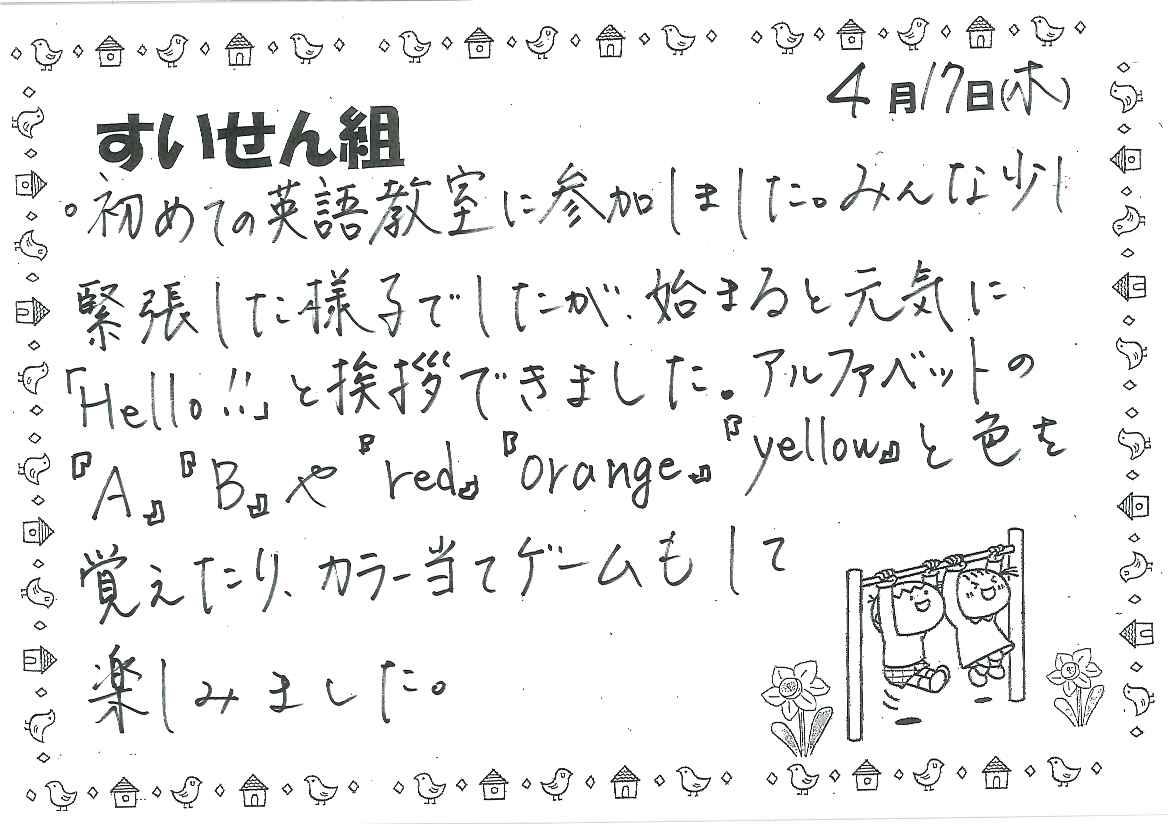 4月17日(木)
すいせん組
。初めての英語教室に参加しました。みんな少し
緊張した様子でしたが、始まると元気に
「Hello!!」と挨拶できました。アルファベットの
『A』『B』や『red』『orange』『yellow』と色を
覚えたり、カラー当てゲームもして
楽しみました。